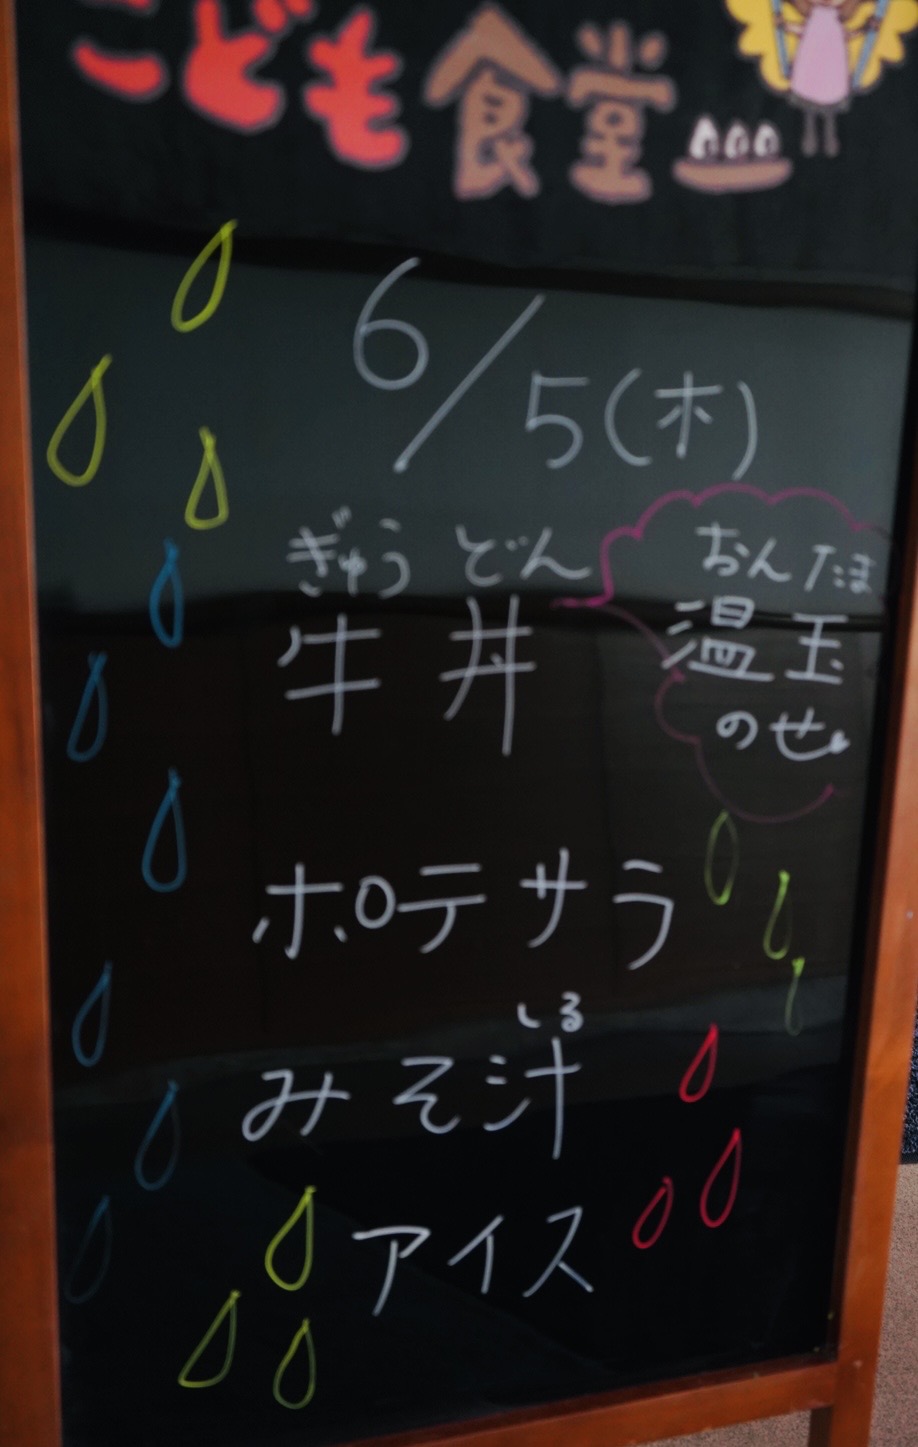 こども食堂
6/5(木)
ぎゅう どん
牛 丼
おんたま
温玉
のせ
ポテサラ
しる
みそ汁
アイス